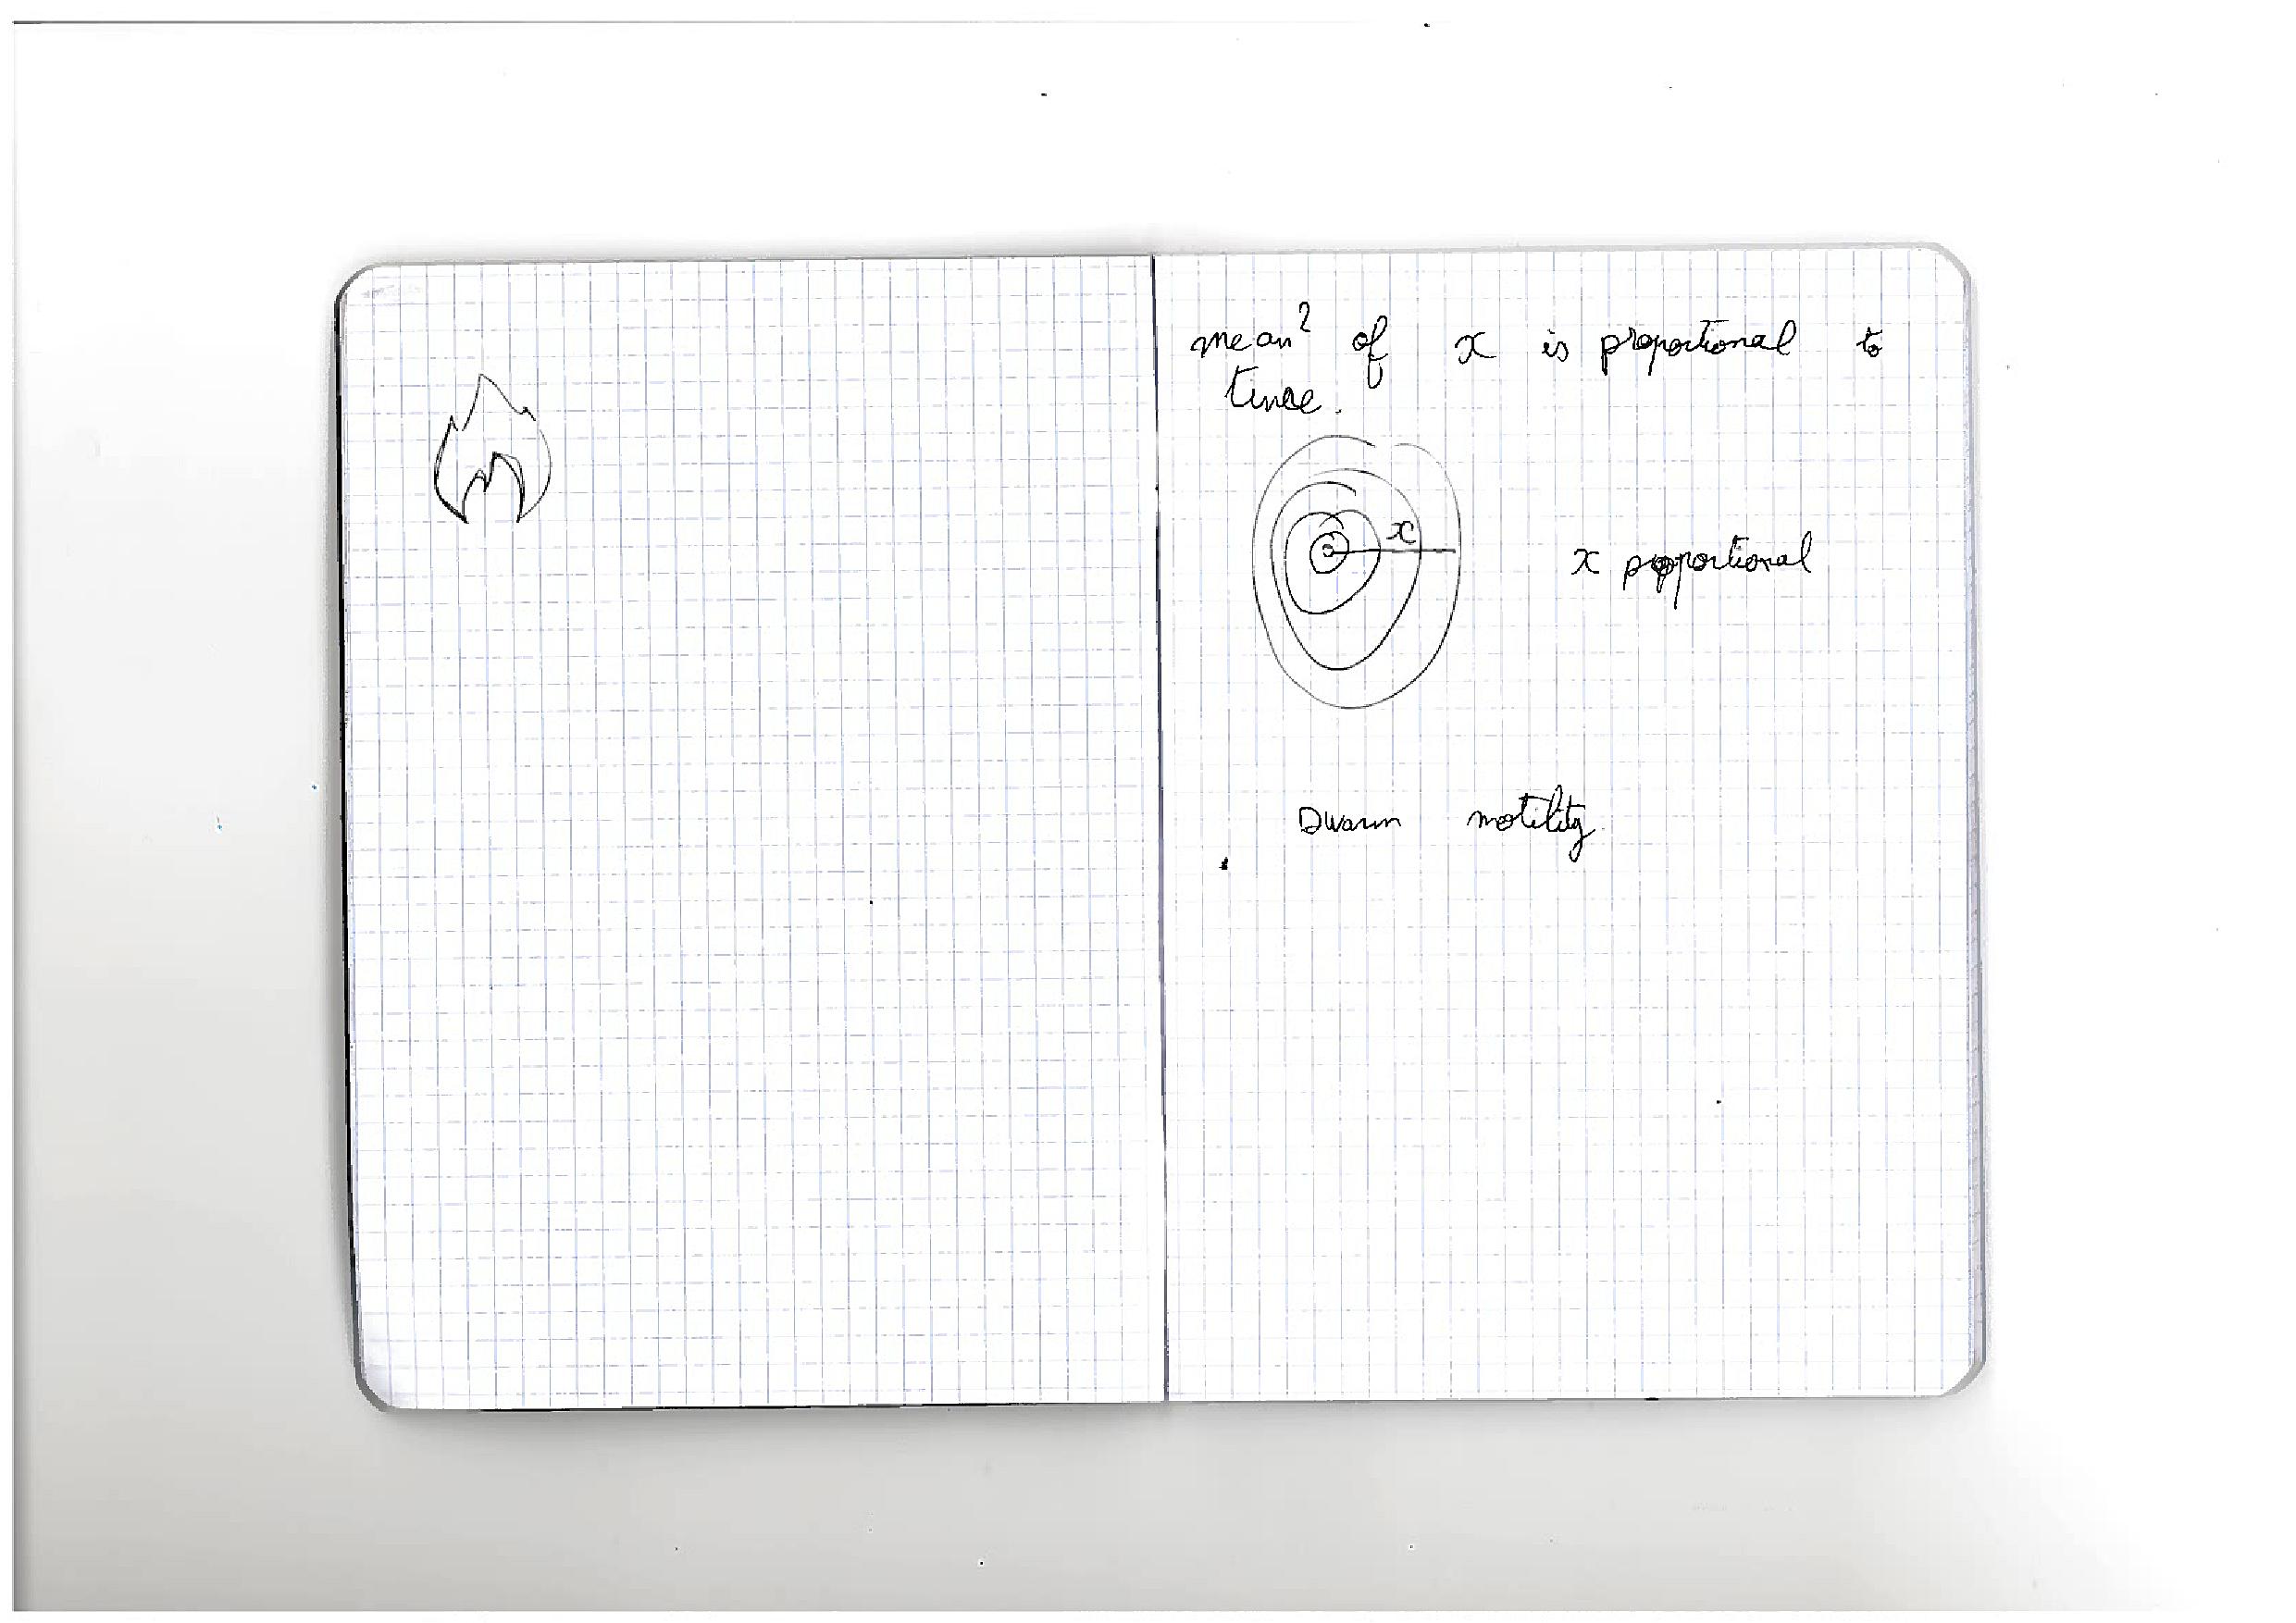 mean² of x is proportional to
time.
x
x proportional
Swarm motility